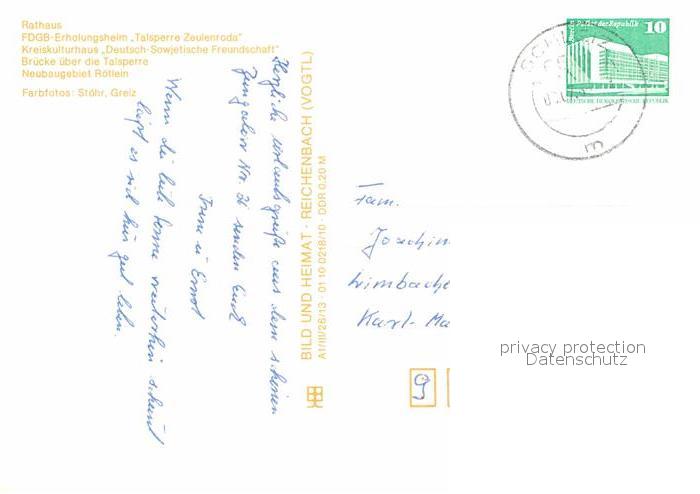 Rathaus
FDGB-Erholungsheim „Talsperre Zeulenroda"
Kreiskulturhaus „Deutsch-Sowjetische Freundschaft"
Brücke über die Talsperre
Neubaugebiet Rötlein
Farbfotos: Stöhr, Greiz
Herzliche Urlaubsgrüße aus dem schönen
Nr. 26 senden Euch
Irene u. Ernst
Wenn die liebe Sonne weiterhin scheint
läßt es sich hier gut leben.
BILD UND HEIMAT · REICHENBACH (VOGTL)
A1/III/26/13 01 10 0218/10 · DDR 0,20 M
Berlin, Palast der Republik
10
DEUTSCHE DEMOKRATISCHE REPUBLIK
Fam.
Joachim
Limbache
Karl-Ma
9
privacy protection
Datenschutz